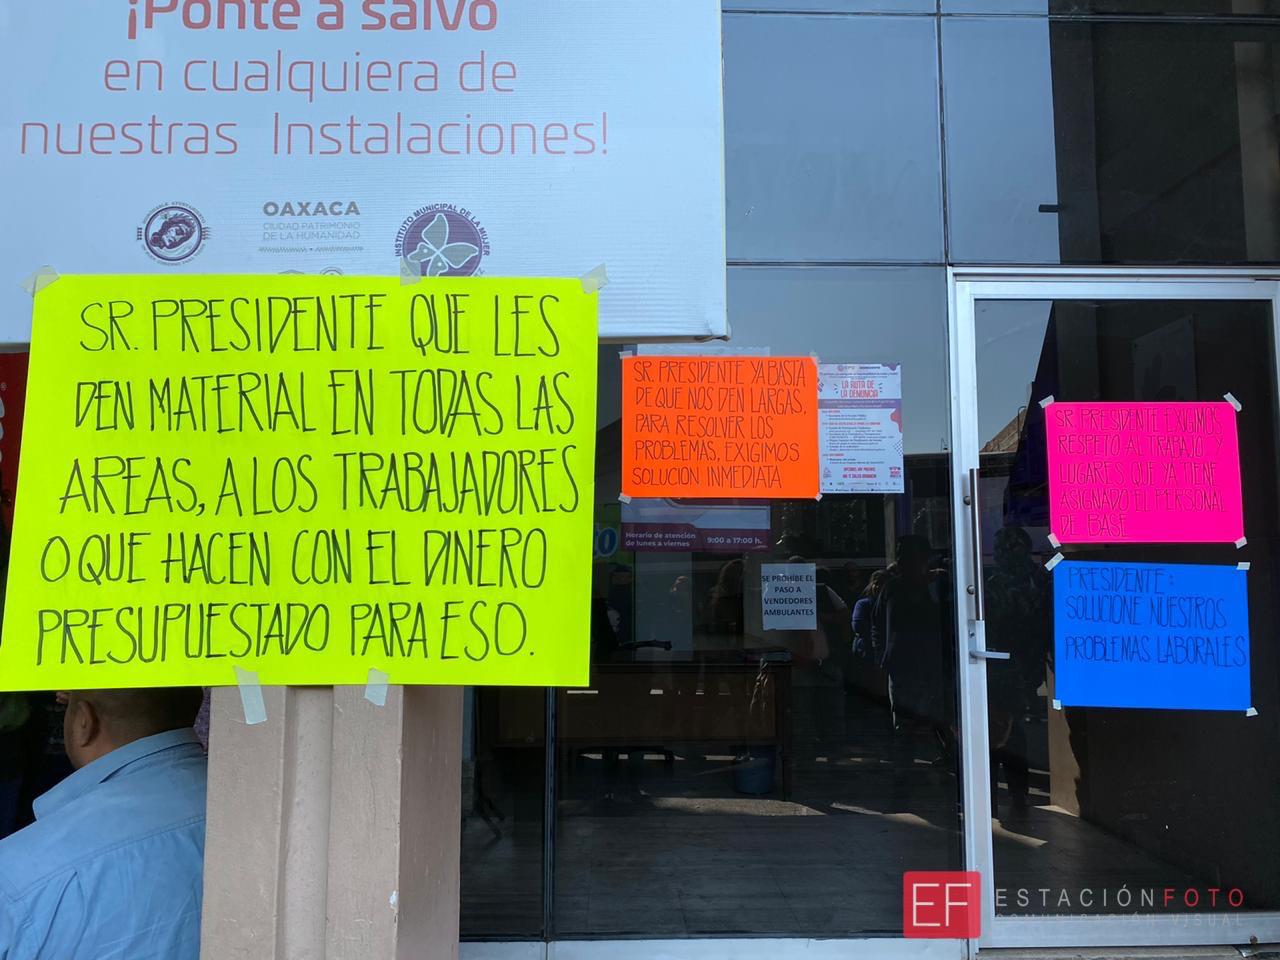 ¡Ponte a salvo
en cualquiera de
nuestras Instalaciones!
OAXACA
CIUDAD PATRIMONIO
DE LA HUMANIDAD
INSTITUTO MUNICIPAL DE LA MUJER
SR. PRESIDENTE QUE LES
DEN MATERIAL EN TODAS LAS
AREAS, A LOS TRABAJADORES
O QUE HACEN CON EL DINERO
PRESUPUESTADO PARA ESO.
SR. PRESIDENTE YA BASTA
DE QUE NOS DEN LARGAS,
PARA RESOLVER LOS
PROBLEMAS, EXIGIMOS
SOLUCION INMEDIATA
LA RUTA DE
LA DENUNCIA
Horario de atención
de lunes a viernes
9:00 a 17:00 h.
SE PROHÍBE EL
PASO A
VENDEDORES
AMBULANTES
SR. PRESIDENTE EXIGIMOS
RESPETO AL TRABAJO
LUGARES QUE YA TIENE
ASIGNADO EL PERSONAL
DE BASE
PRESIDENTE:
SOLUCIONE NUESTROS
PROBLEMAS LABORALES
EF ESTACIÓNFOTO
COMUNICACIÓN VISUAL